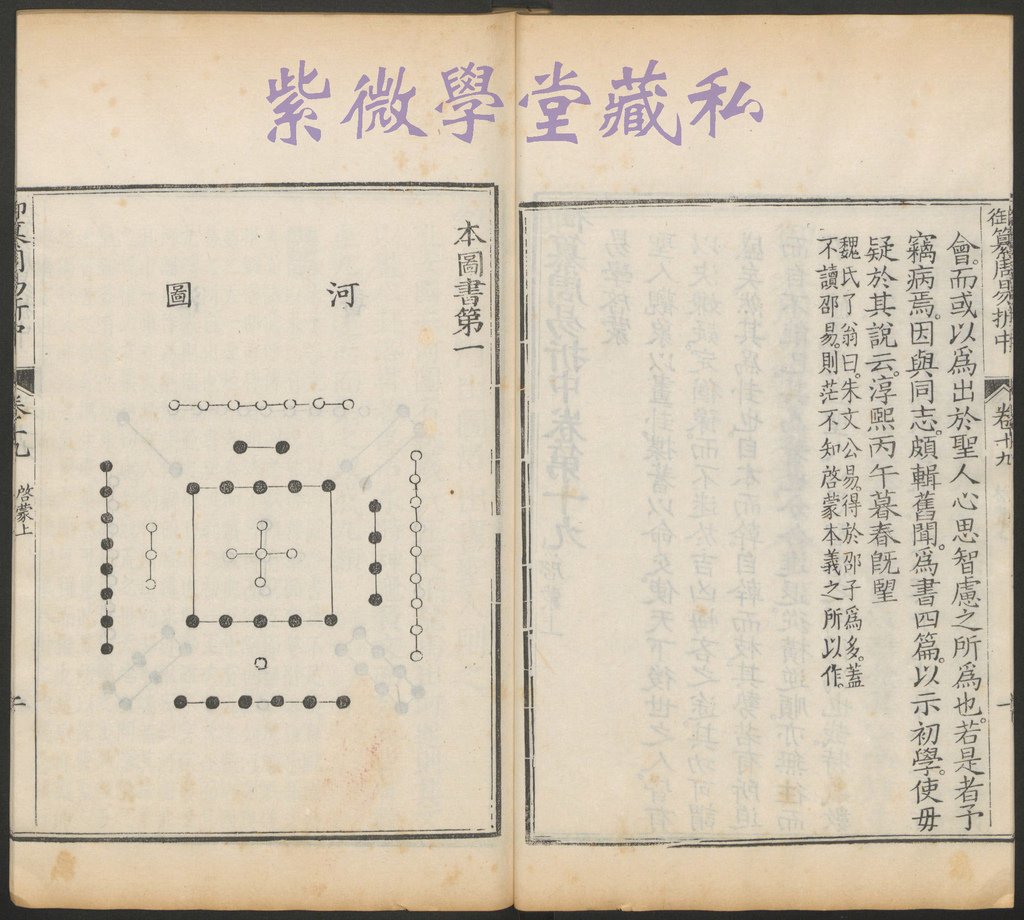 紫微學堂藏私
御纂周易折中
卷十九
一
會而或以爲出於聖人心思智慮之所爲也。若是者予
竊病焉。因與同志。頗輯舊聞。爲書四篇。以示初學。使毋
疑於其說云。淳熙丙午暮春既望
魏氏了翁曰。朱文公易。得於邵子爲多。蓋
不讀邵易。則茫不知啓蒙本義之所以作。
本圖書第一
河圖
啓蒙上
二